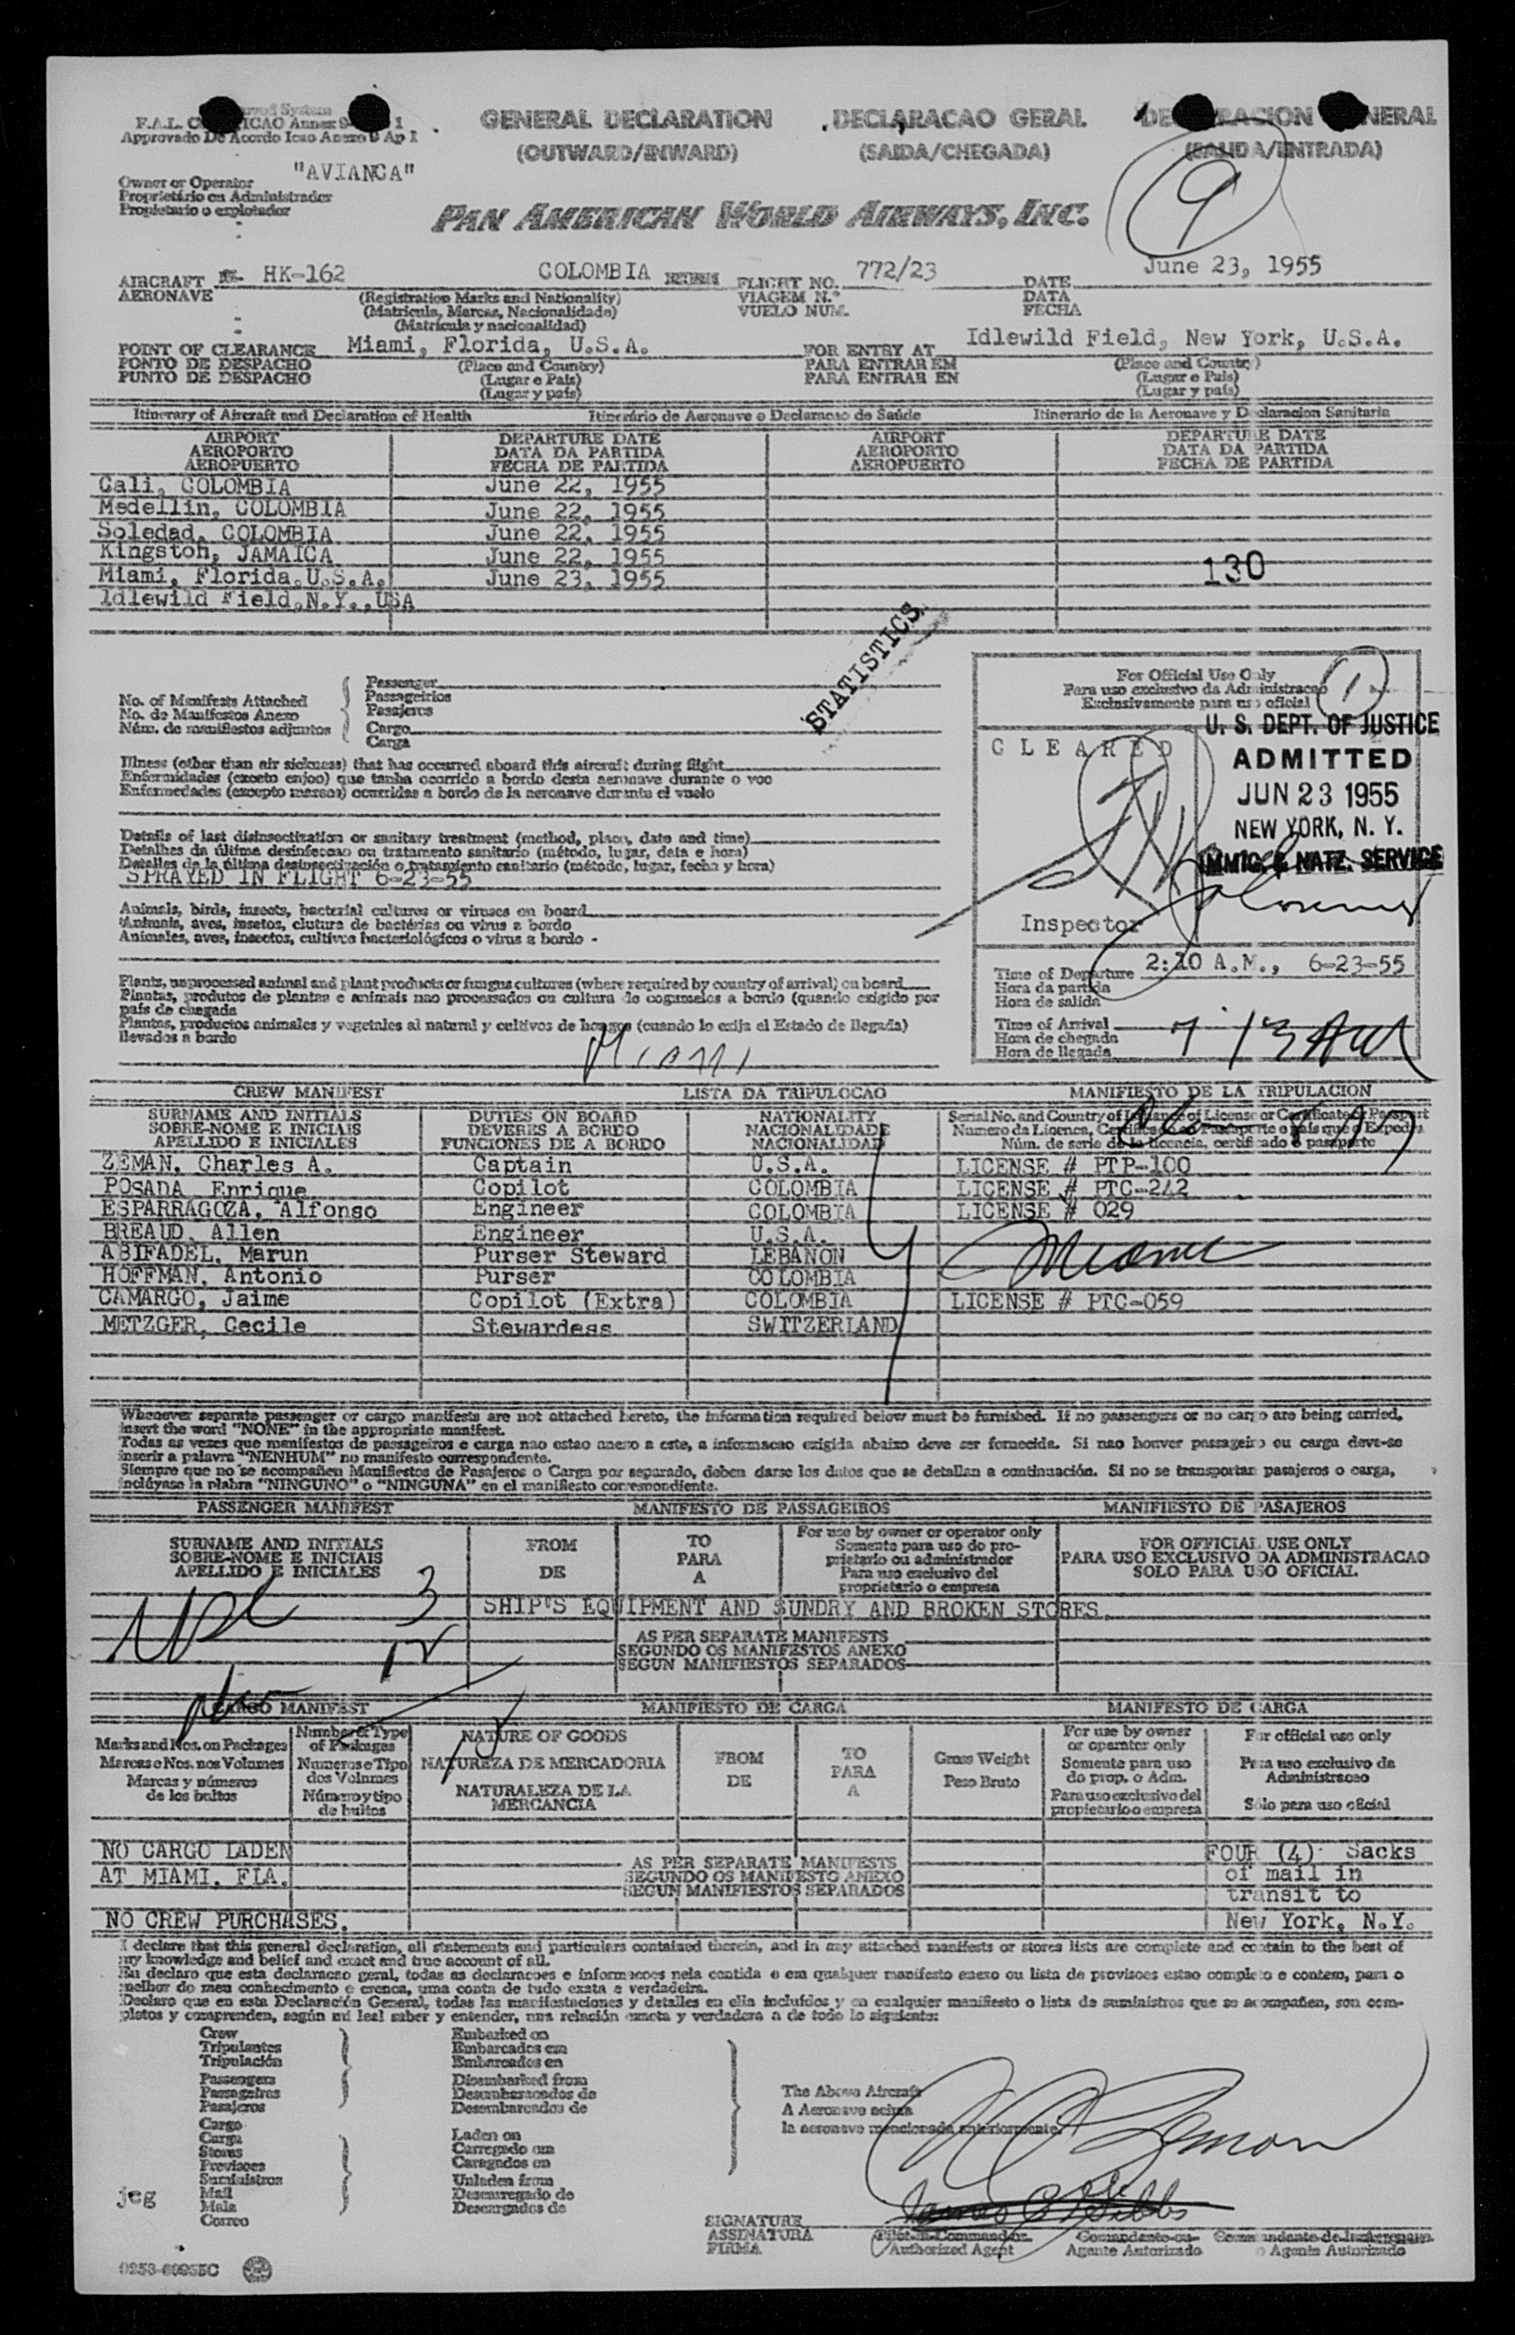 GENERAL DECLARATION
(OUTWARD/INWARD)
DECLARACAO GERAL
(SAIDA/CHEGADA)
(SALIDA/ENTRADA)
Approvado De Acordo Icao Anexo 9 Ap 1
"AVIANCA"
9
Owner or Operator
Proprietário ou Administrador
Propietario o explotador
PAN AMERICAN WORLD AIRWAYS, INC.
AIRCRAFT HK-162 COLOMBIA FLIGHT NO. 772/23 DATE June 23, 1955
AERONAVE (Registration Marks and Nationality) VIAGEM N.º DATA
(Matricula, Marcas, Nacionalidade) VUELO NUM. FECHA
(Matrícula y nacionalidad)
POINT OF CLEARANCE Miami, Florida, U.S.A. FOR ENTRY AT Idlewild Field, New York, U.S.A.
PONTO DE DESPACHO (Place and Country) PARA ENTRAR EM (Place and Country)
PUNTO DE DESPACHO (Lugar e País) PARA ENTRAR EN (Lugar e País)
(Lugar y país) (Lugar y país)
Itinerary of Aircraft and Declaration of Health Itinerário de Aeronave e Declaracao de Saúde Itinerario de la Aeronave y Declaracion Sanitaria
AIRPORT DEPARTURE DATE AIRPORT DEPARTURE DATE
AEROPORTO DATA DA PARTIDA AEROPORTO DATA DA PARTIDA
AEROPUERTO FECHA DE PARTIDA AEROPUERTO FECHA DE PARTIDA
Cali, COLOMBIA June 22, 1955
Medellin, COLOMBIA June 22, 1955
Soledad, COLOMBIA June 22, 1955
Kingston, JAMAICA June 22, 1955
Miami, Florida.U.S.A. June 23, 1955
130
Idlewild Field,N.Y.,USA
STATISTICS
No. of Manifests Attached
No. de Manifestos Anexo
Núm. de manifiestos adjuntos
Passenger
Passageirios
Pasajeros
Cargo
Carga
For Official Use Only
Para uso exclusivo da Administracao
Exclusivamente para uso oficial
1
CLEARED
U. S. DEPT. OF JUSTICE
ADMITTED
JUN 23 1955
NEW YORK, N. Y.
IMMIG. & NATZ. SERVICE
Inspector
Illness (other than air sickness) that has occurred aboard this aircraft during flight
Enfermidades (exceto enjoo) que tenha ocorrido a bordo desta aeronave durante o voo
Enfermedades (excepto mareos) ocurridas a bordo de la aeronave durante el vuelo
Details of last disinsectization or sanitary treatment (method, place, date and time)
Detalhes da última desinfeccao ou tratamento sanitario (método, lugar, data e hora)
Detalles de la última desinsectización o tratamiento sanitario (método, lugar, fecha y hora)
SPRAYED IN FLIGHT 6-23-55
Animals, birds, insects, bacterial cultures or viruses on board
Animais, aves, insetos, clutura de bactérias ou virus a bordo
Animales, aves, insectos, cultivos bacteriológicos o virus a bordo -
Plants, unprocessed animal and plant products or fungus cultures (where required by country of arrival) on board
Plantas, produtos de plantas e animais nao processados ou cultura de cogumelos a bordo (quando exigido por
pais de chegada
Plantas, productos animales y vegetales al natural y cultivos de hongos (cuando lo exija el Estado de llegada)
llevados a bordo
Miami
Time of Departure 2:10 A.M., 6-23-55
Hora da partida
Hora de salida
Time of Arrival 7 13 AM
Hora de chegada
Hora de llegada
CREW MANIFEST LISTA DA TRIPULOCAO MANIFIESTO DE LA TRIPULACION
SURNAME AND INITIALS DUTIES ON BOARD NATIONALITY Serial No. and Country of Issuance of License or Certificate or Passport
SOBRE-NOME E INICIAIS DEVERES A BORDO NACIONALIDADE
APELLIDO E INICIALES FUNCIONES DE A BORDO NACIONALIDAD Núm. de serie de la licencia, certificado o pasaporte
ZEMAN, Charles A. Captain U.S.A. LICENSE # PTP-100
POSADA Enrique Copilot COLOMBIA LICENSE # PTC-242
ESPARRAGOZA, Alfonso Engineer COLOMBIA LICENSE # 029
BREAUD, Allen Engineer U.S.A.
ABIFADEL, Marun Purser Steward LEBANON
Miami
HOFFMAN, Antonio Purser COLOMBIA
CAMARGO, Jaime Copilot (Extra) COLOMBIA LICENSE # PTC-059
METZGER, Cecile Stewardess SWITZERLAND
Whenever separate passenger or cargo manifests are not attached hereto, the information required below must be furnished. If no passengers or no cargo are being carried,
insert the word "NONE" in the appropriate manifest.
Todas as vezes que manifestos de passageiros e carga nao estao anexo a este, a informacao exigida abaixo deve ser fornecida. Si nao houver passageiro ou carga deve-se
inserir a palavra "NENHUM" no manifesto correspondente.
Siempre que no se acompañen Manifiestos de Pasajeros o Carga por separado, deben darse los datos que se detallan a continuación. Si no se transportan pasajeros o carga,
inclúyase la plabra "NINGUNO" o "NINGUNA" en el manifiesto correspondiente.
PASSENGER MANIFEST MANIFESTO DE PASSAGEIROS MANIFIESTO DE PASAJEROS
SURNAME AND INITIALS
SOBRE-NOME E INICIAIS
APELLIDO E INICIALES
FROM
DE
TO
PARA
A
For use by owner or operator only
Somente para uso do pro-
prietario ou administrador
Para uso exclusivo del
proprietario o empresa
FOR OFFICIAL USE ONLY
PARA USO EXCLUSIVO DA ADMINISTRACAO
SOLO PARA USO OFICIAL
3
SHIP'S EQUIPMENT AND SUNDRY AND BROKEN STORES.
12
AS PER SEPARATE MANIFESTS
SEGUNDO OS MANIFESTOS ANEXO
SEGUN MANIFIESTOS SEPARADOS
CARGO MANIFEST MANIFIESTO DE CARGA MANIFESTO DE CARGA
Marks and Nos. on Packages
Marcas e Nos. nos Volumes
Marcas y números
de los bultos
Number & Type
of Packages
Numeros e Tipo
dos Volumes
Número y tipo
de bultos
NATURE OF GOODS
NATUREZA DE MERCADORIA
NATURALEZA DE LA
MERCANCIA
FROM
DE
TO
PARA
A
Gross Weight
Peso Bruto
For use by owner
or operator only
Somente para uso
do prop. o Adm.
Para uso exclusivo del
propietario o empresa
For official use only
Para uso exclusivo da
Administracao
Sólo para uso oficial
NO CARGO LADEN
AT MIAMI. FLA.
NO CREW PURCHASES.
AS PER SEPARATE MANIFESTS
SEGUNDO OS MANIFESTO ANEXO
SEGUN MANIFIESTOS SEPARADOS
FOUR (4) Sacks
of mail in
transit to
New York, N.Y.
I declare that this general declaration, all statements and particulars contained therein, and in any attached manifests or stores lists are complete and contain to the best of
my knowledge and belief and exact and true account of all.
Eu declaro que esta declaracao geral, todas as declaracoes e informacoes nela contida e em qualquer manifesto anexo ou lista de provisoes estao completo e contem, para o
melhor do meu conhecimento e crenca, uma conta de tudo exata e verdadeira.
Declaro que en esta Declaración General, todas las manifestaciones y detalles en ella incluídos y en cualquier manifiesto o lista de suministros que se acompañen, son com-
pletos y comprenden, según mi leal saber y entender, una relación exacta y verdadera a de todo lo siguiente:
Crew
Tripulantes
Tripulación
Passengers
Passageiros
Pasajeros
Cargo
Carga
Stores
Provisoes
Suministros
Mail
Mala
Correo
Embarked on
Embarcados em
Embarcados en
Disembarked from
Desembarcados de
Desembarcados de
Laden on
Carregado em
Caragados en
Unladen from
Descarregado de
Descargados de
The Above Aircraft
A Aeronave acima
la aeronave mencionada anteriormente
jeg
SIGNATURE
ASSINATURA
FIRMA
Pilot-in-Commander
Authorized Agent
Comandante ou
Agente Autorizado
Comandante de la Aeronave
o Agente Autorizado